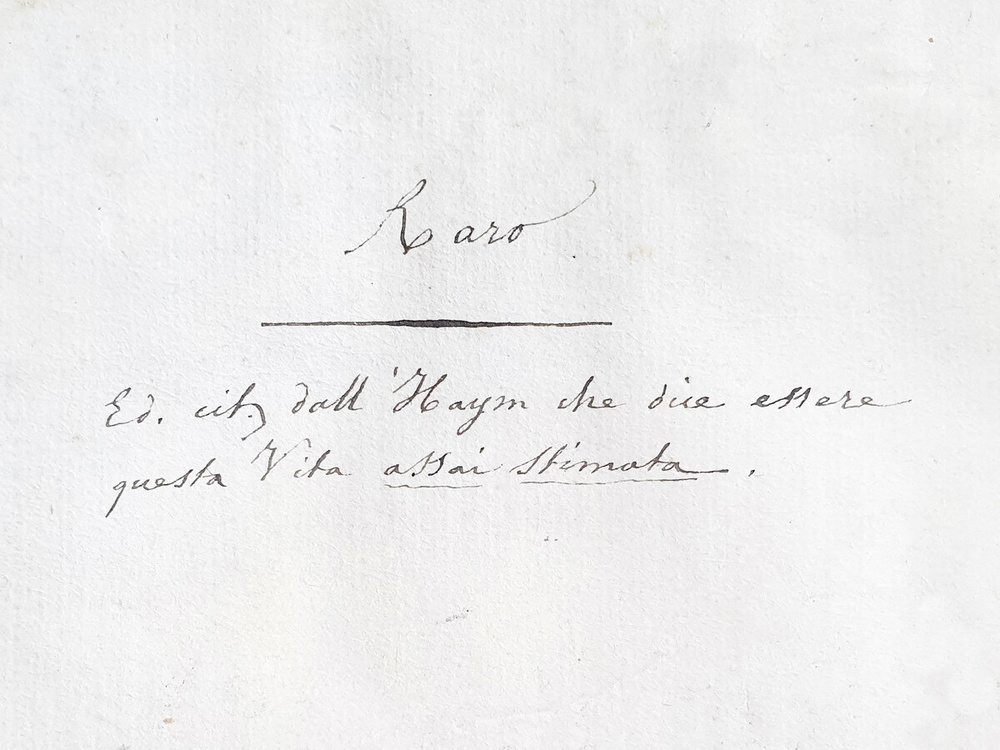 Raro
Ed. cit. dall'Haym che dice essere
questa Vita assai stimata.